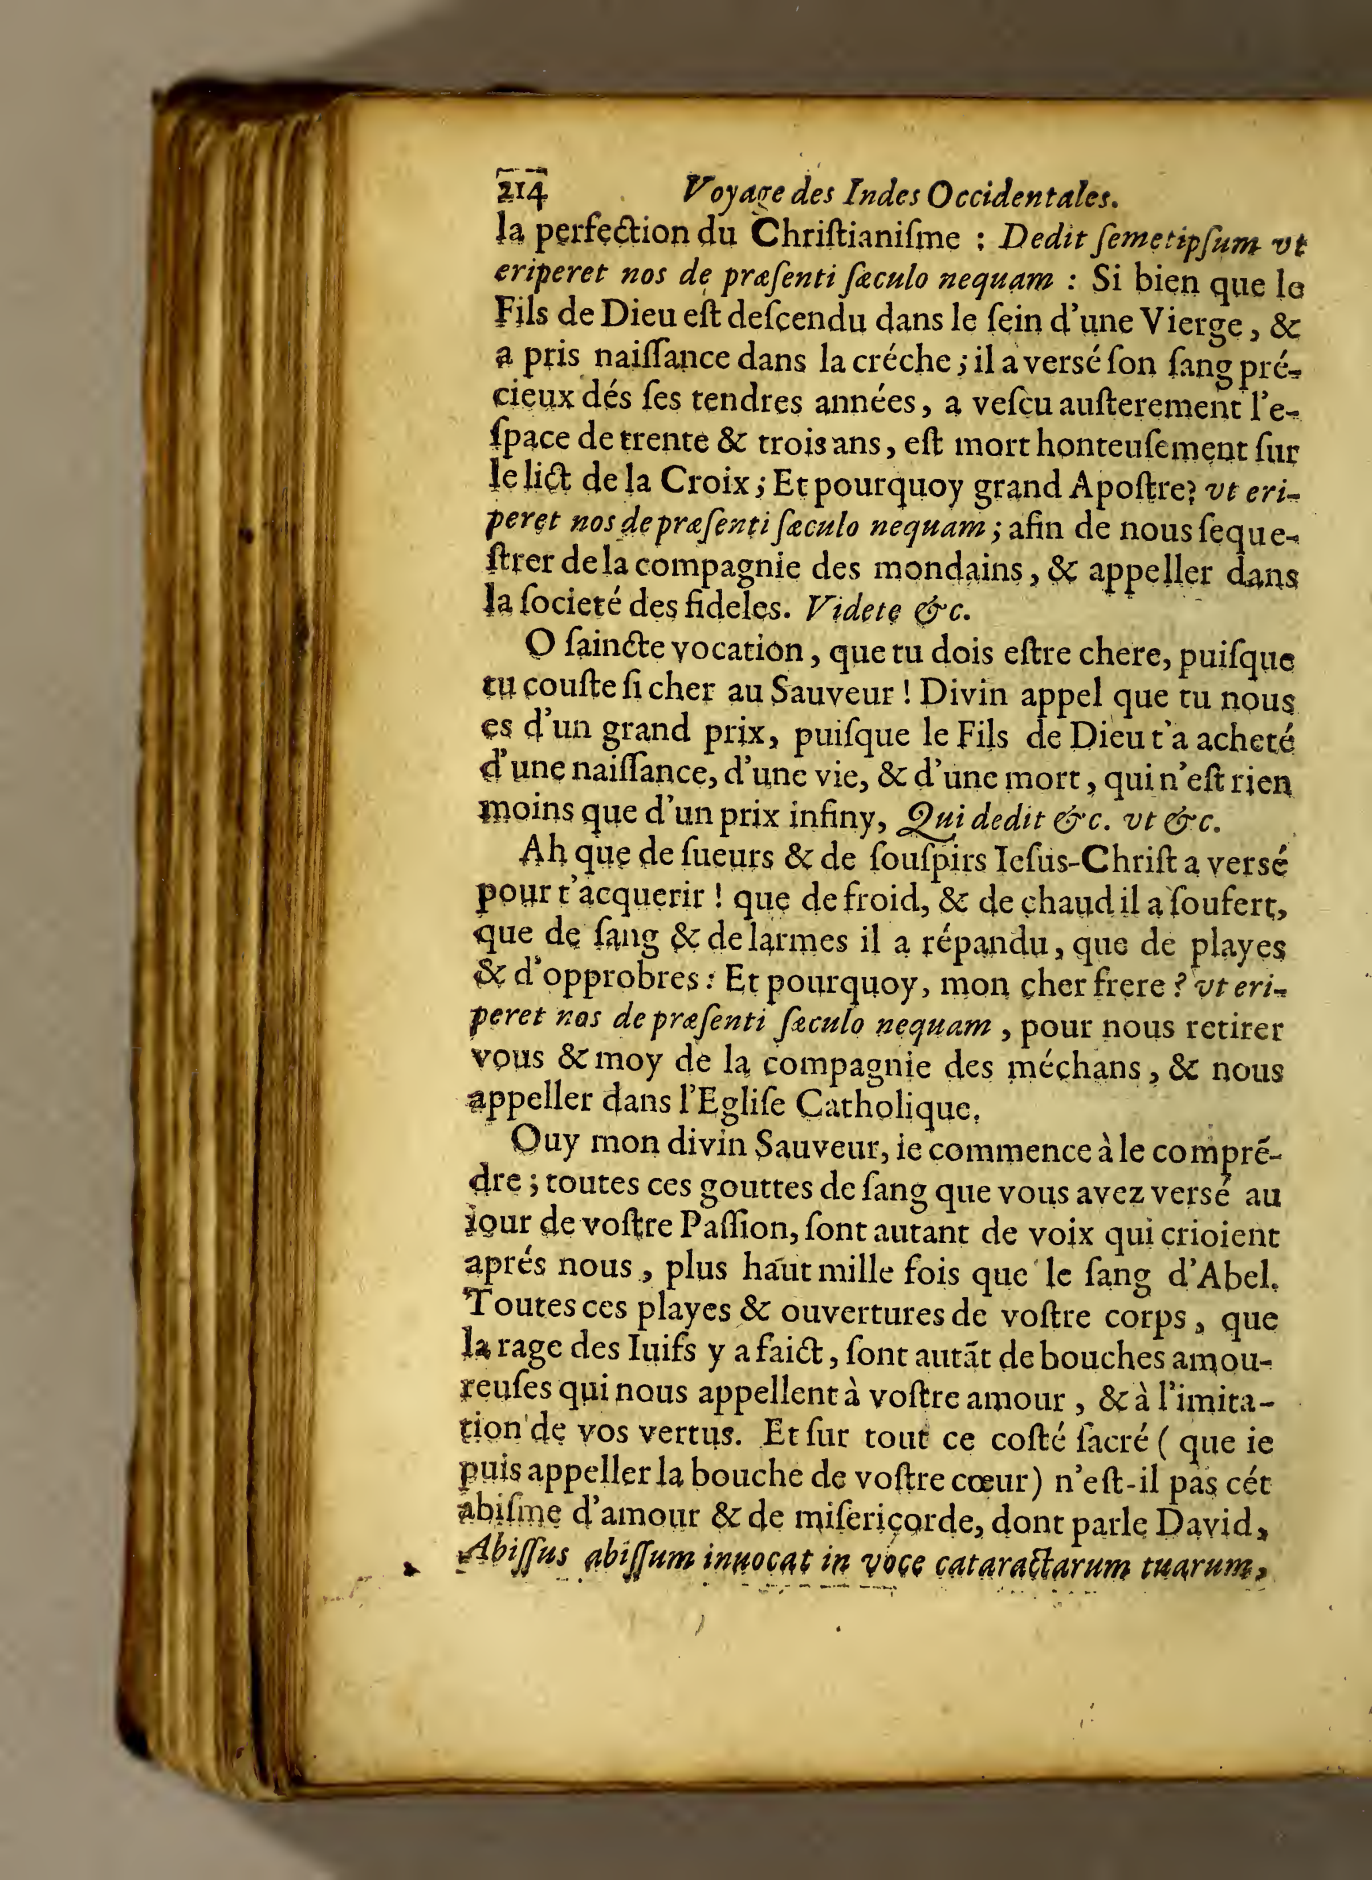 214 Voyage des Indes Occidentales.
la perfection du Chriſtianiſme : Dedit ſemetipſum vt
eriperet nos de præſenti ſæculo nequam : Si bien que le
Fils de Dieu eſt deſcendu dans le ſein d'une Vierge, &
a pris naiſſance dans la créche ; il a versé ſon ſang pré-
cieux dés ſes tendres années, a veſcu auſterement l'e-
ſpace de trente & trois ans, eſt mort honteuſement ſur
le lict de la Croix ; Et pourquoy grand Apoſtre ? vt eri-
peret nos de præſenti ſæculo nequam ; afin de nous ſeque-
ſtrer de la compagnie des mondains, & appeller dans
la ſocieté des fideles. Videte &c.
O ſaincte vocation, que tu dois eſtre chere, puiſque
tu couſte ſi cher au Sauveur ! Divin appel que tu nous
es d'un grand prix, puiſque le Fils de Dieu t'a acheté
d'une naiſſance, d'une vie, & d'une mort, qui n'eſt rien
moins que d'un prix infiny, Qui dedit &c. vt &c.
Ah que de ſueurs & de ſouſpirs Ieſus-Chriſt a versé
pour t'acquerir ! que de froid, & de chaud il a ſoufert,
que de ſang & de larmes il a répandu, que de playes
& d'opprobres : Et pourquoy, mon cher frere ? vt eri-
peret nos de præſenti ſæculo nequam, pour nous retirer
vous & moy de la compagnie des méchans, & nous
appeller dans l'Egliſe Catholique.
Ouy mon divin Sauveur, ie commence à le comprẽ-
dre ; toutes ces gouttes de ſang que vous avez versé au
iour de voſtre Paſſion, ſont autant de voix qui crioient
aprés nous, plus haut mille fois que le ſang d'Abel.
Toutes ces playes & ouvertures de voſtre corps, que
la rage des Iuifs y a faict, ſont autãt de bouches amou-
reuſes qui nous appellent à voſtre amour, & à l'imita-
tion de vos vertus. Et ſur tout ce coſté ſacré ( que ie
puis appeller la bouche de voſtre cœur) n'eſt-il pas cét
abiſme d'amour & de miſericorde, dont parle David,
Abiſſus abiſſum inuocat in voce cataractarum tuarum,